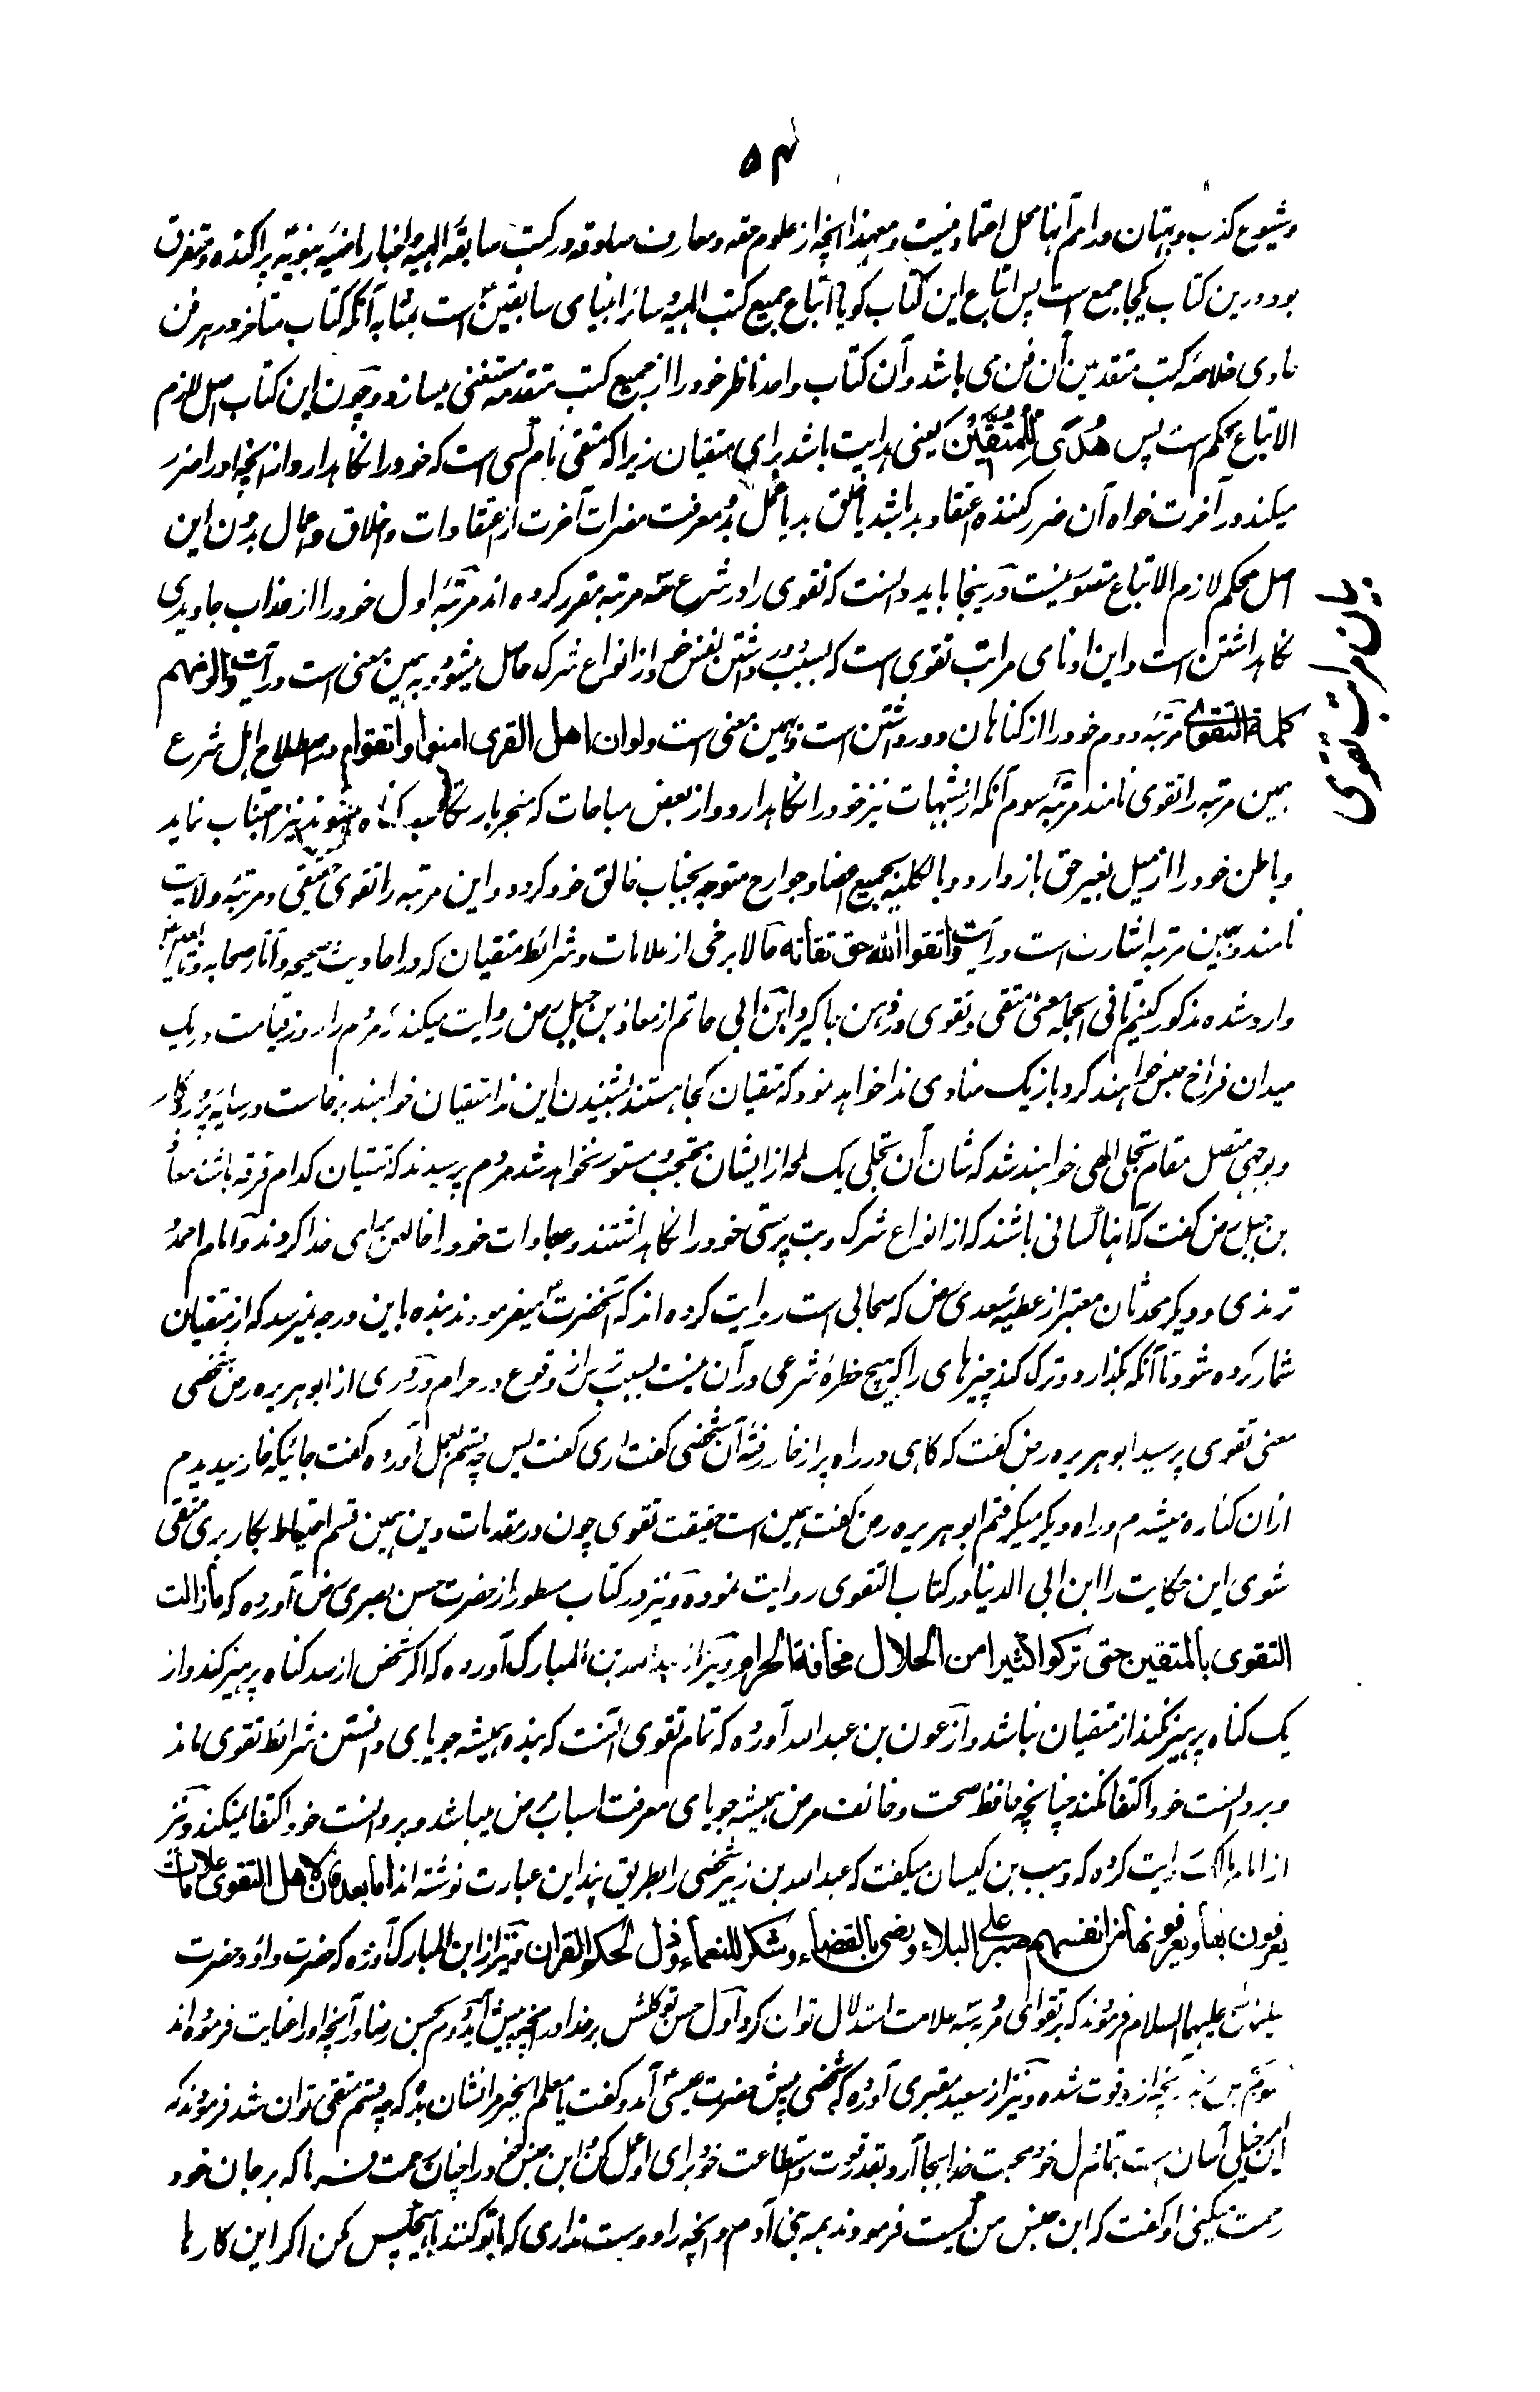 ۵۴
و شیوع کذب و بهتان در امم آنها محل اعتماد نیست و معهذا آنچه از علوم حقه و معارف صادقه در کتب سابقه الهیه و اخبار ماضیه نبویه پراکنده و متفرق
بود درین کتاب یکجا جمع است پس اتباع این کتاب گویا اتباع جمیع کتب الهیه و سائر انبیای سابقین است بمثابه آنکه کتاب متاخر در هر فن
حاوی خلاصه کتب متقدمین آن فن می باشد و آن کتاب واحد ناظر خود را از جمیع کتب متقدمه مستغنی میسازد و چون این کتاب اصل لازم
الاتباع محکم است پس هُدًى لِلْمُتَّقِيْنَ یعنی هدایت باشد برای متقیان زیرا که متقی نام کسی است که خود را نگاهدارد از آنچه او را ضرر
میکند در آخرت خواه آن ضرر کننده اعتقاد بد باشد یا خلق بد یا عمل بد و معرفت مضرات آخرت از اعتقادات و اخلاق و اعمال بدون این
اصل محکم لازم الاتباع متصور نیست و درینجا باید دانست که تقوی را در شرع سه مرتبه مقرر کرده اند مرتبه اول خود را از عذاب جاویدی
نگاهداشتن است و این ادنای مراتب تقوی است که بسبب دور داشتن نفس خود از انواع شرک حاصل میشود و به همین معنی است در آیت والزمهم
کلمة التقوی مرتبه دوم خود را از گناهان دور داشتن است و بهمین معنی است ولو ان اهل القری امنوا واتقوا و در اصطلاح اهل شرع
همین مرتبه را تقوی نامند مرتبه سوم آنکه از شبهات نیز خود را نگاهدارد و از بعض مباحات که منجر بارتکاب گناه میشوند نیز اجتناب نماید
و باطن خود را از میل بغیر حق باز دارد و بالکلیه بجمیع اعضا و جوارح متوجه بجناب خالق خود گردد و این مرتبه را تقوی حقیقی و مرتبه ولایت
نامند و بهمین مرتبه اشارت است در آیت واتقوا الله حق تقاته حالا برخی از علامات و شرائط متقیان که در احادیث صحیحه و آثار صحابه و تابعین
وارد شده مذکور کنیم تا فی الجمله معنی متقی و تقوی در ذهن جا گیرد ابن ابی حاتم از معاذ بن جبل رض روایت میکند که مردم را روز قیامت در یک
میدان فراخ حبس خواهند کرد باز یک منادی ندا خواهد نمود که متقیان کجا هستند بشنیدن این ندا متقیان خواهند برخاست در سایه پروردگار
و بوجهی متصل مقام تجلی الهی خواهند شد که شان آن تجلی یک لمحه از ایشان محتجب و مستور نخواهد شد مردم پرسیدند که متقیان کدام فرقه باشند معاذ
بن جبل رض گفت که آنها کسانی باشند که از انواع شرک و بت پرستی خود را نگاهداشتند و عبادات خود را خالص برای خدا کردند و امام احمد و
ترمذی و دیگر محدثان معتبر از عطیه سعدی رض که صحابی است روایت کرده اند که آنحضرت میفرمودند بنده باین درجه نمیرسد که از متقیان
شمار کرده شود تا آنکه بگذارد و ترک کند چیزهای را که هیچ خطره شرعی در آن نیست بسبب ترس از وقوع در حرام و مروی از ابو هریره رض شخصی
معنی تقوی پرسید ابو هریره رض گفت که گاهی در راه پر از خار رفته آن شخص گفت اری گفت پس چه قسم بعمل آورده گفت جائیکه خار میدیدم
ازان کناره میشدم و راه دیگر میگرفتم ابو هریره رض گفت همین است حقیقت تقوی چون در مقدمات دین همین قسم احتیاط بکار بری متقی
شوی این حکایت را ابن ابی الدنیا در کتاب التقوی روایت نموده و نیز در کتاب مسطور از حضرت حسن بصری رض آورده که ما زالت
التقوی بالمتقین حتی ترکوا کثیرا من الحلال مخافة الحرام و نیز از عبدالله بن المبارک آورده که اگر شخص از صد گناه پرهیز کند و از
یک گناه پرهیز نکند از متقیان نباشد و از عون بن عبدالله آورده که تمام تقوی آنست که بنده همیشه جویای دانستن شرائط تقوی ماند
و بر دانست خود اکتفا نکند چنانچه حافظ صحت و خائف مرض همیشه جویای معرفت اسباب مرض میباشد و بر دانست خود اکتفا نمیکند و نیز
از امام مالک روایت کرده که وهب بن کیسان میگفت که عبدالله بن زبیر شخصی را بطریق پند این عبارت نوشته اند اما بعد فان لاهل التقوی علامات
یعرفون بها ویعرفونها من انفسهم صبر علی البلاء ورضی بالقضاء وشکر للنعماء وذل لحکم القران و نیز از ابن المبارک آورده که حضرت داؤد حضرت
سلیمان علیهما السلام فرمودند که بر تقوای مرد به سه علامت استدلال توان کرد اول حسن توکلش بر خدا در آنچه پیش آید دوم حسن رضا در آنچه او را عنایت فرموده اند
سوم حسن زهد در آنچه ازو فوت شده و نیز از سعید مقبری آورده که شخصی پیش حضرت عیسی آمد و گفت یا معلم الخیر مرا نشان بده که چه قسم متقی توان شد فرمودند که
این امر خیلی آسان است بتمام دل خود محبت خدا بجا آر و بقدر قوت و استطاعت خود برای او عمل کن و بر ابن جنس خود را چنان رحمت فرما که بر جان خود
رحمت میکنی او گفت که ابن جنس من کیست فرمودند همه بنی آدم و آنچه را دوست نداری که با تو کنند با هیچکس مکن اگر این کارها
بیان مراتب تقوی